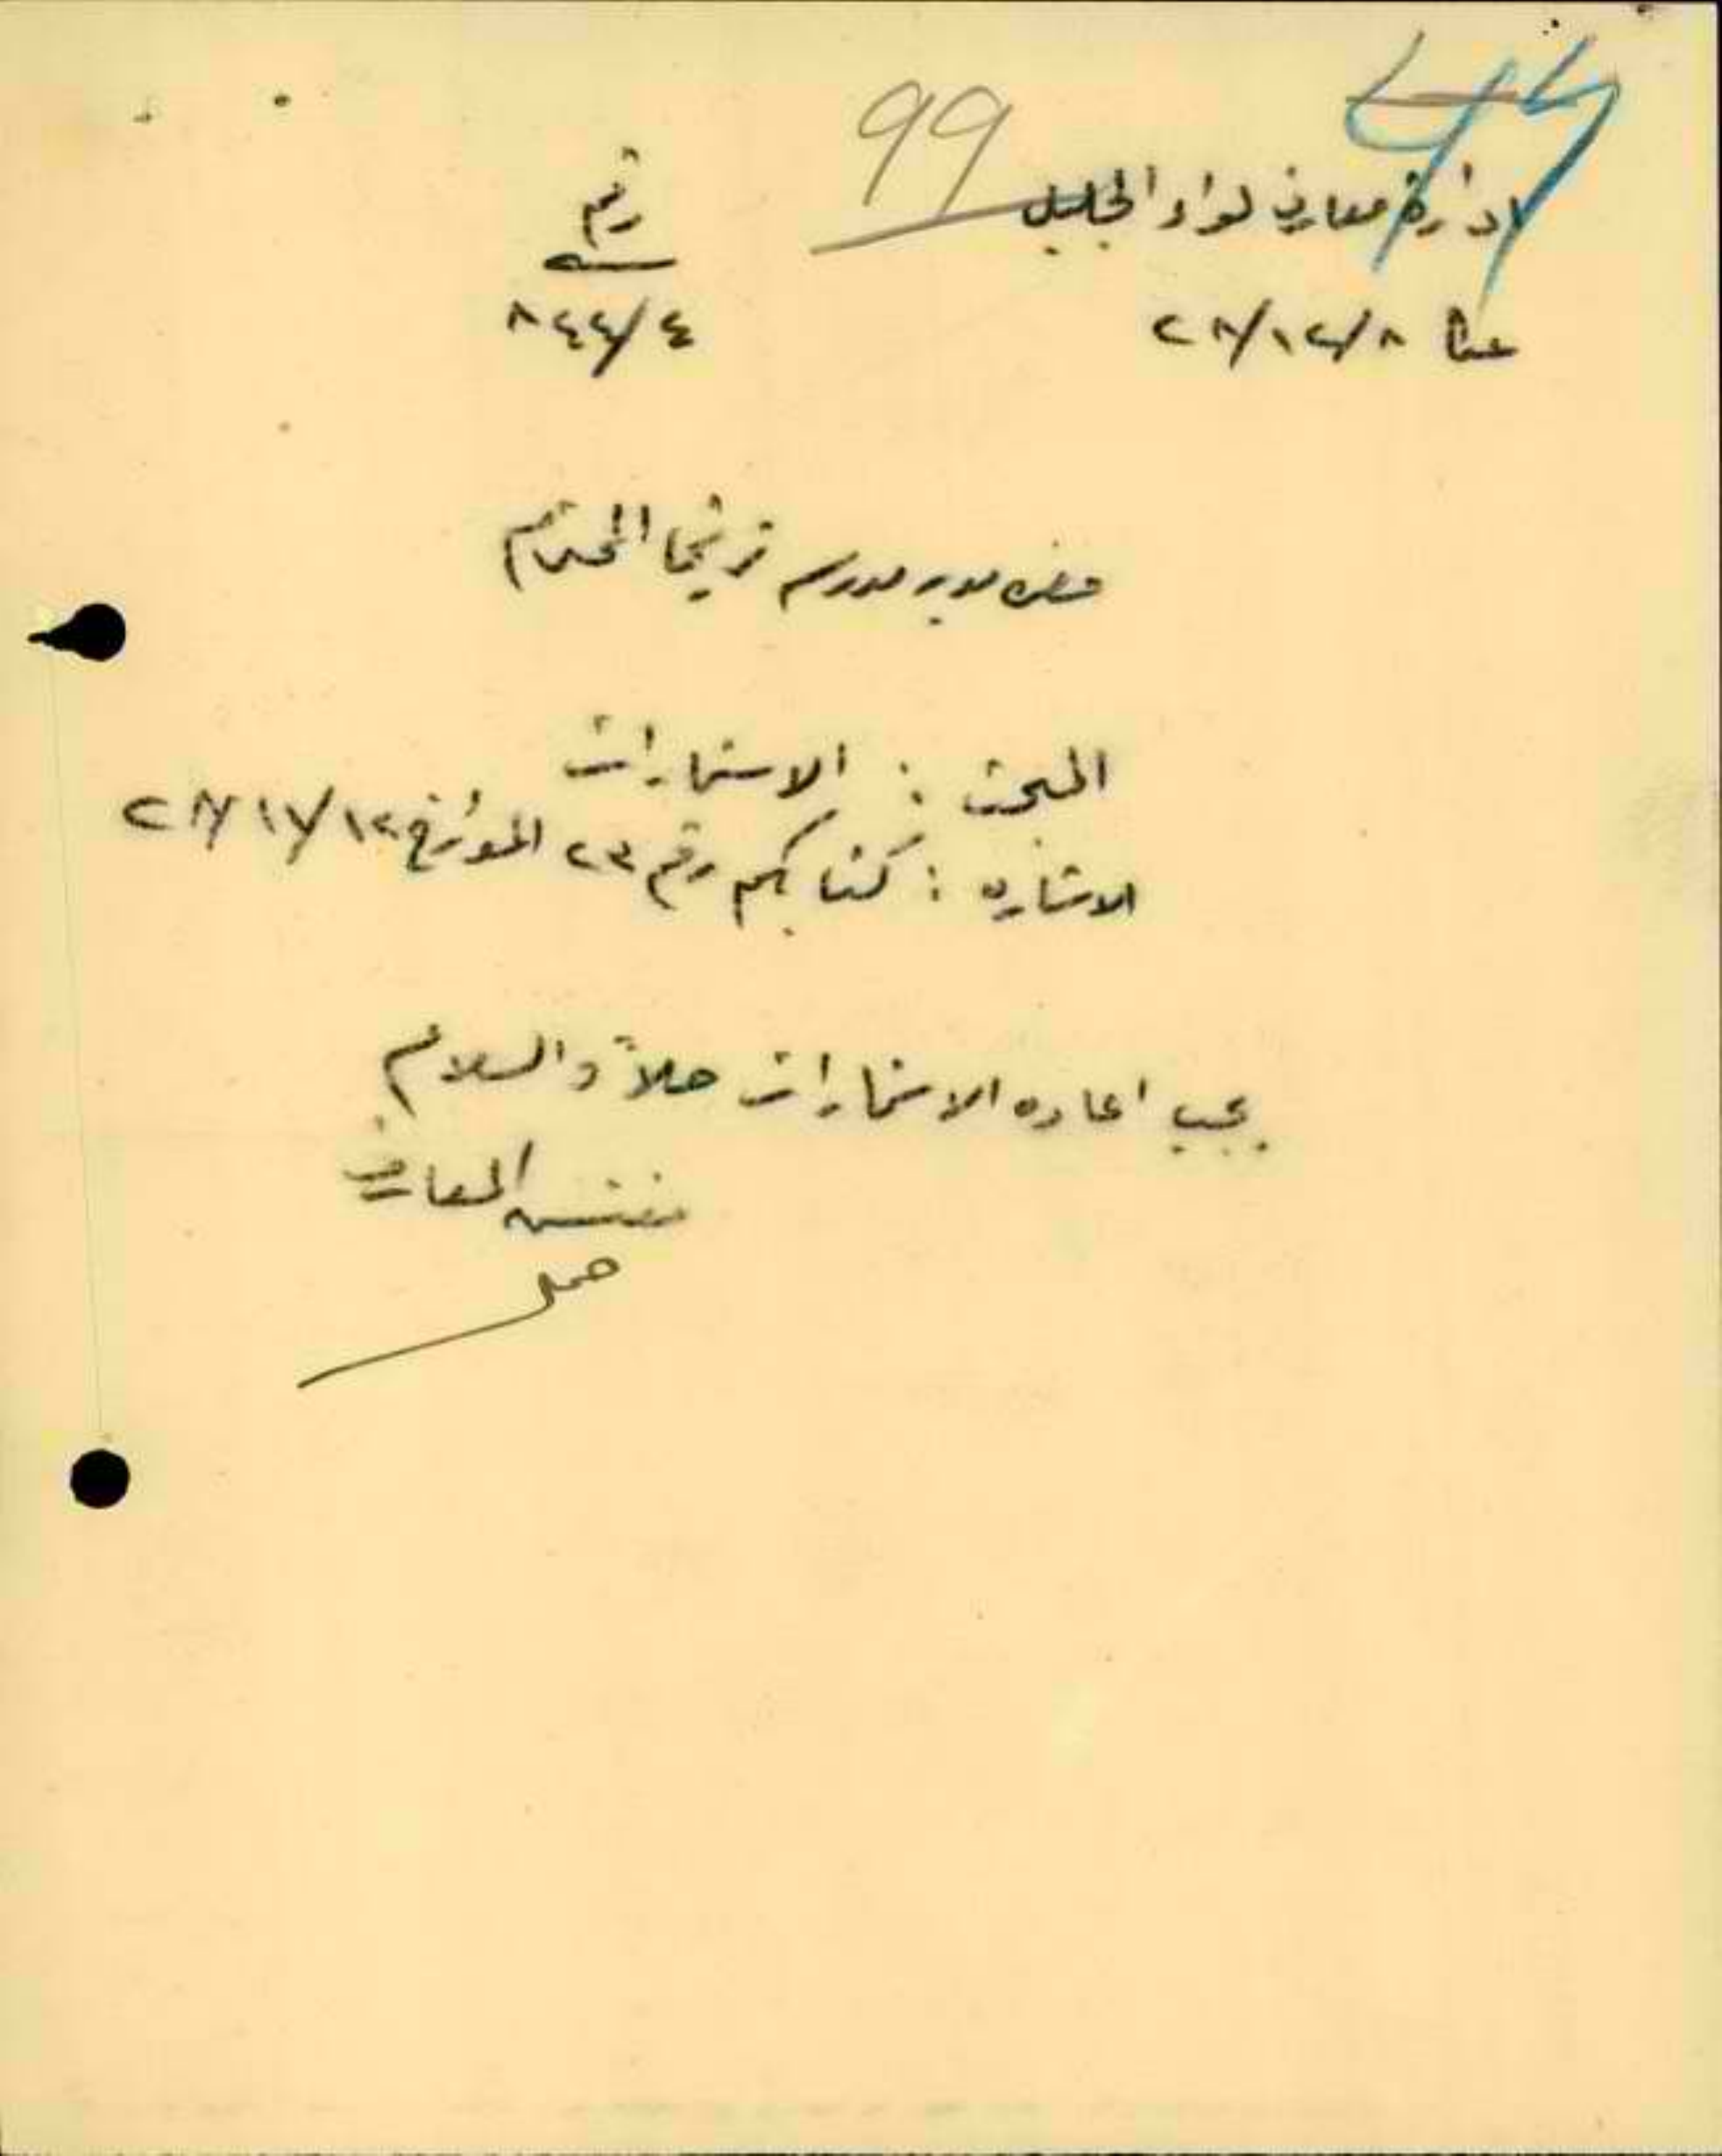 99
ادارة معارف لواء الجليل
رقم
٨٤٤/٤
عكا ٢٨/١٢/٨
حضرة مدير مدرسة ترشيحا المحترم
المبحث : الاستمارات
الاشارة : كتابكم رقم ٢٣ المؤرخ
يجب اعادة الاستمارات حالاً والسلام
مفتش المعارف